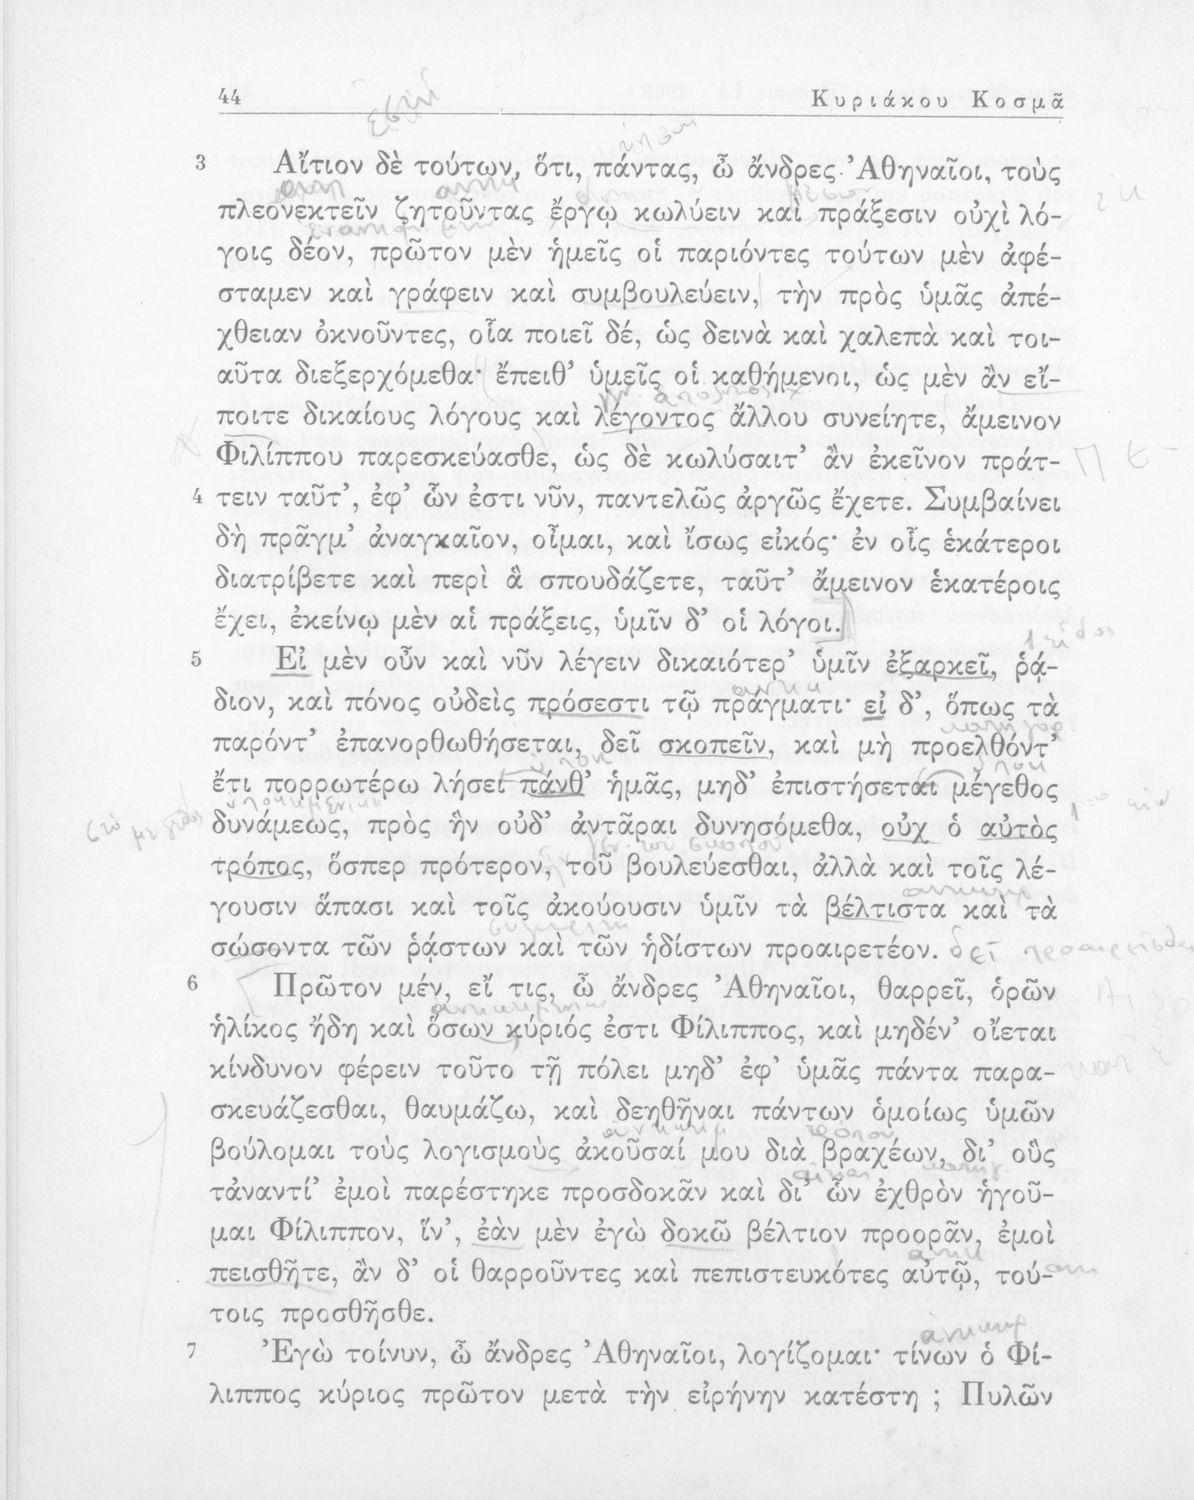 44 Κυριάκου Κοσμᾶ
3 Αἴτιον δὲ τούτων, ὅτι, πάντας, ὦ ἄνδρες Ἀθηναῖοι, τοὺς
πλεονεκτεῖν ζητοῦντας ἔργῳ κωλύειν καὶ πράξεσιν οὐχὶ λό-
γοις δέον, πρῶτον μὲν ἡμεῖς οἱ παριόντες τούτων μὲν ἀφέ-
σταμεν καὶ γράφειν καὶ συμβουλεύειν, τὴν πρὸς ὑμᾶς ἀπέ-
χθειαν ὀκνοῦντες, οἷα ποιεῖ δέ, ὡς δεινὰ καὶ χαλεπὰ καὶ τοι-
αῦτα διεξερχόμεθα· ἔπειθ’ ὑμεῖς οἱ καθήμενοι, ὡς μὲν ἂν εἴ-
ποιτε δικαίους λόγους καὶ λέγοντος ἄλλου συνείητε, ἄμεινον
Φιλίππου παρεσκεύασθε, ὡς δὲ κωλύσαιτ’ ἂν ἐκεῖνον πράτ-
4 τειν ταῦτ’, ἐφ’ ὧν ἐστι νῦν, παντελῶς ἀργῶς ἔχετε. Συμβαίνει
δὴ πρᾶγμ’ ἀναγκαῖον, οἶμαι, καὶ ἴσως εἰκός· ἐν οἷς ἑκάτεροι
διατρίβετε καὶ περὶ ἃ σπουδάζετε, ταῦτ’ ἄμεινον ἑκατέροις
ἔχει, ἐκείνῳ μὲν αἱ πράξεις, ὑμῖν δ’ οἱ λόγοι.
5 Εἰ μὲν οὖν καὶ νῦν λέγειν δικαιότερ’ ὑμῖν ἐξαρκεῖ, ῥᾴ-
διον, καὶ πόνος οὐδεὶς πρόσεστι τῷ πράγματι· εἰ δ’, ὅπως τὰ
παρόντ’ ἐπανορθωθήσεται, δεῖ σκοπεῖν, καὶ μὴ προελθόντ’
ἔτι πορρωτέρω λήσει πάνθ’ ἡμᾶς, μηδ’ ἐπιστήσεται μέγεθος
δυνάμεως, πρὸς ἣν οὐδ’ ἀντᾶραι δυνησόμεθα, οὐχ ὁ αὐτὸς
τρόπος, ὅσπερ πρότερον, τοῦ βουλεύεσθαι, ἀλλὰ καὶ τοῖς λέ-
γουσιν ἅπασι καὶ τοῖς ἀκούουσιν ὑμῖν τὰ βέλτιστα καὶ τὰ
σώσοντα τῶν ῥᾴστων καὶ τῶν ἡδίστων προαιρετέον.
6 Πρῶτον μέν, εἴ τις, ὦ ἄνδρες Ἀθηναῖοι, θαρρεῖ, ὁρῶν
ἡλίκος ἤδη καὶ ὅσων κύριός ἐστι Φίλιππος, καὶ μηδέν’ οἴεται
κίνδυνον φέρειν τοῦτο τῇ πόλει μηδ’ ἐφ’ ὑμᾶς πάντα παρα-
σκευάζεσθαι, θαυμάζω, καὶ δεηθῆναι πάντων ὁμοίως ὑμῶν
βούλομαι τοὺς λογισμοὺς ἀκοῦσαί μου διὰ βραχέων, δι’ οὓς
τἀναντί’ ἐμοὶ παρέστηκε προσδοκᾶν καὶ δι’ ὧν ἐχθρὸν ἡγοῦ-
μαι Φίλιππον, ἵν’, ἐὰν μὲν ἐγὼ δοκῶ βέλτιον προορᾶν, ἐμοὶ
πεισθῆτε, ἂν δ’ οἱ θαρροῦντες καὶ πεπιστευκότες αὐτῷ, τού-
τοις προσθῆσθε.
7 Ἐγὼ τοίνυν, ὦ ἄνδρες Ἀθηναῖοι, λογίζομαι· τίνων ὁ Φί-
λιππος κύριος πρῶτον μετὰ τὴν εἰρήνην κατέστη ; Πυλῶν